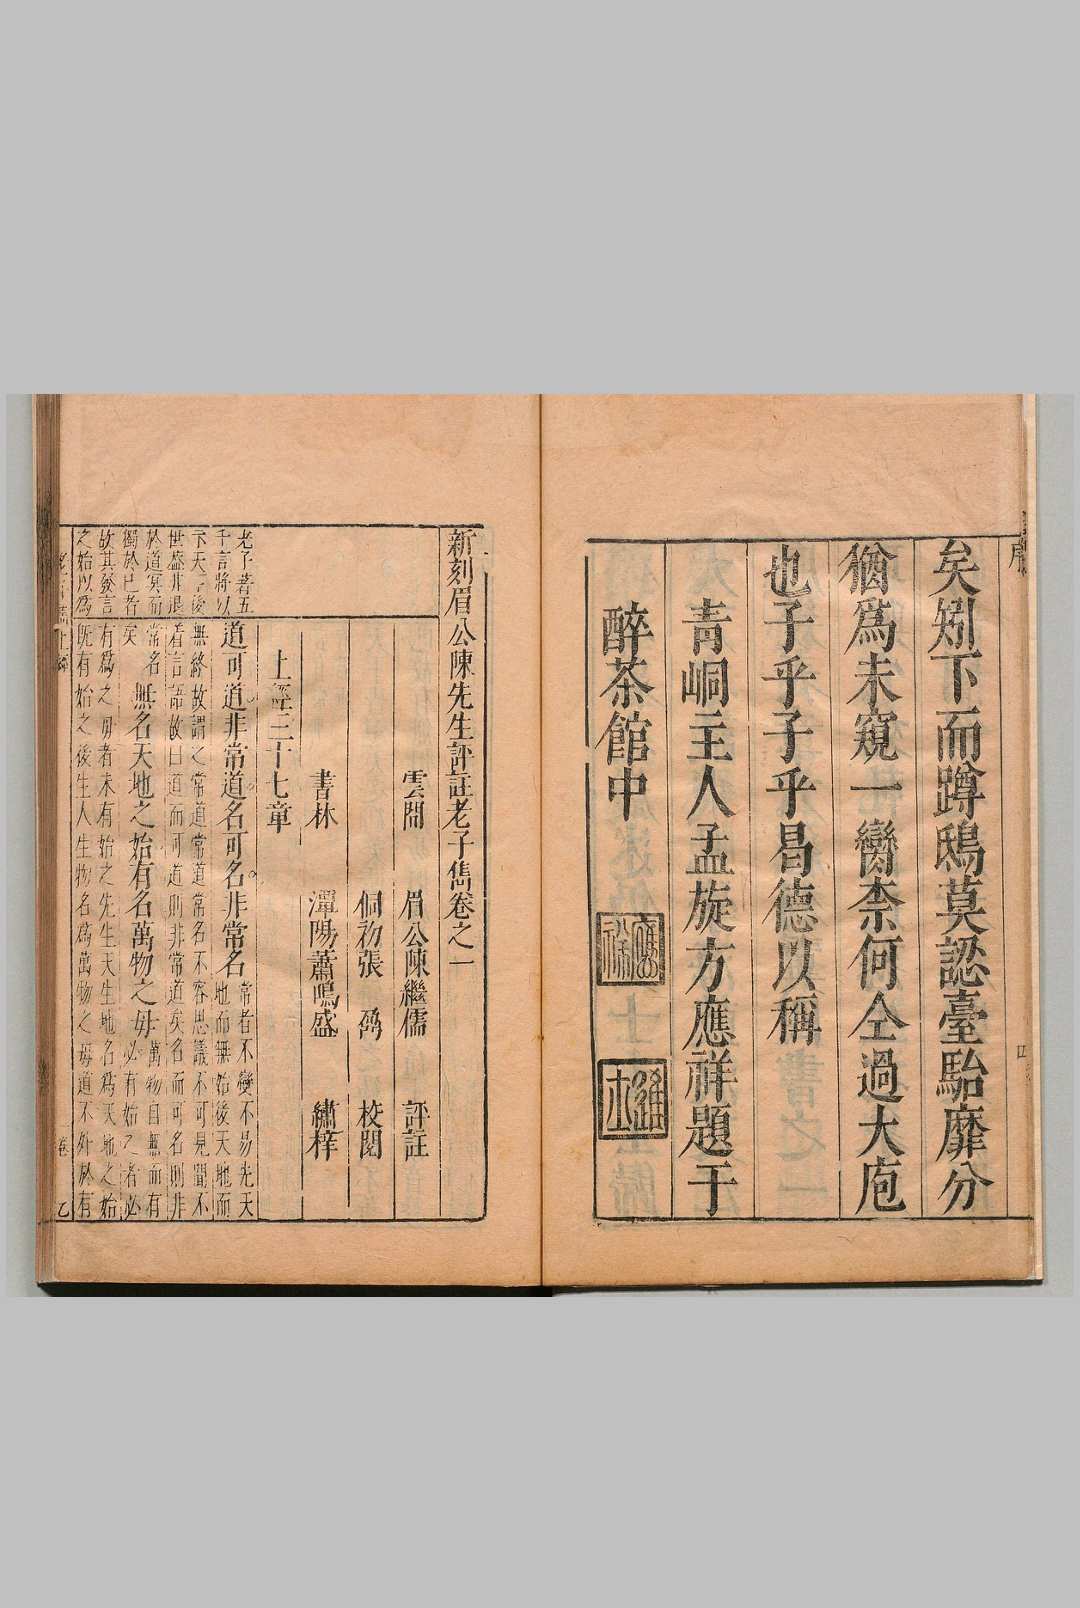 序
矣矧下而蹲鴟莫認臺駘靡分
猶爲未窺一臠柰何仝過大庖
也子乎子乎昌德以稱
青峒主人孟旋方應祥題于
醉茶館中
應祥
進士
四
新刻眉公陳先生評註老子雋卷之一
雲間　眉公陳繼儒　評註
侗初張　鼐　校閱
書林　潭陽蕭鳴盛　繡梓
上經三十七章
老子著五
千言將以
天下後
世盛非退
於道冥而
獨於已者
故其發言
之始以爲
道可道非常道名可名非常名
常者不變不易先天
地而無始後天地而
無終故謂之常道常道常名不容思議不可見聞不
着言語故曰道而可道則非常道矣名而可名則非
常名
矣
無名天地之始有名萬物之母
萬物自無而有
必有始之者必
有爲之母者未有始之先生天生地名爲天地之始
既有始之後生人生物名爲萬物之母道不外於有
卷一
乙